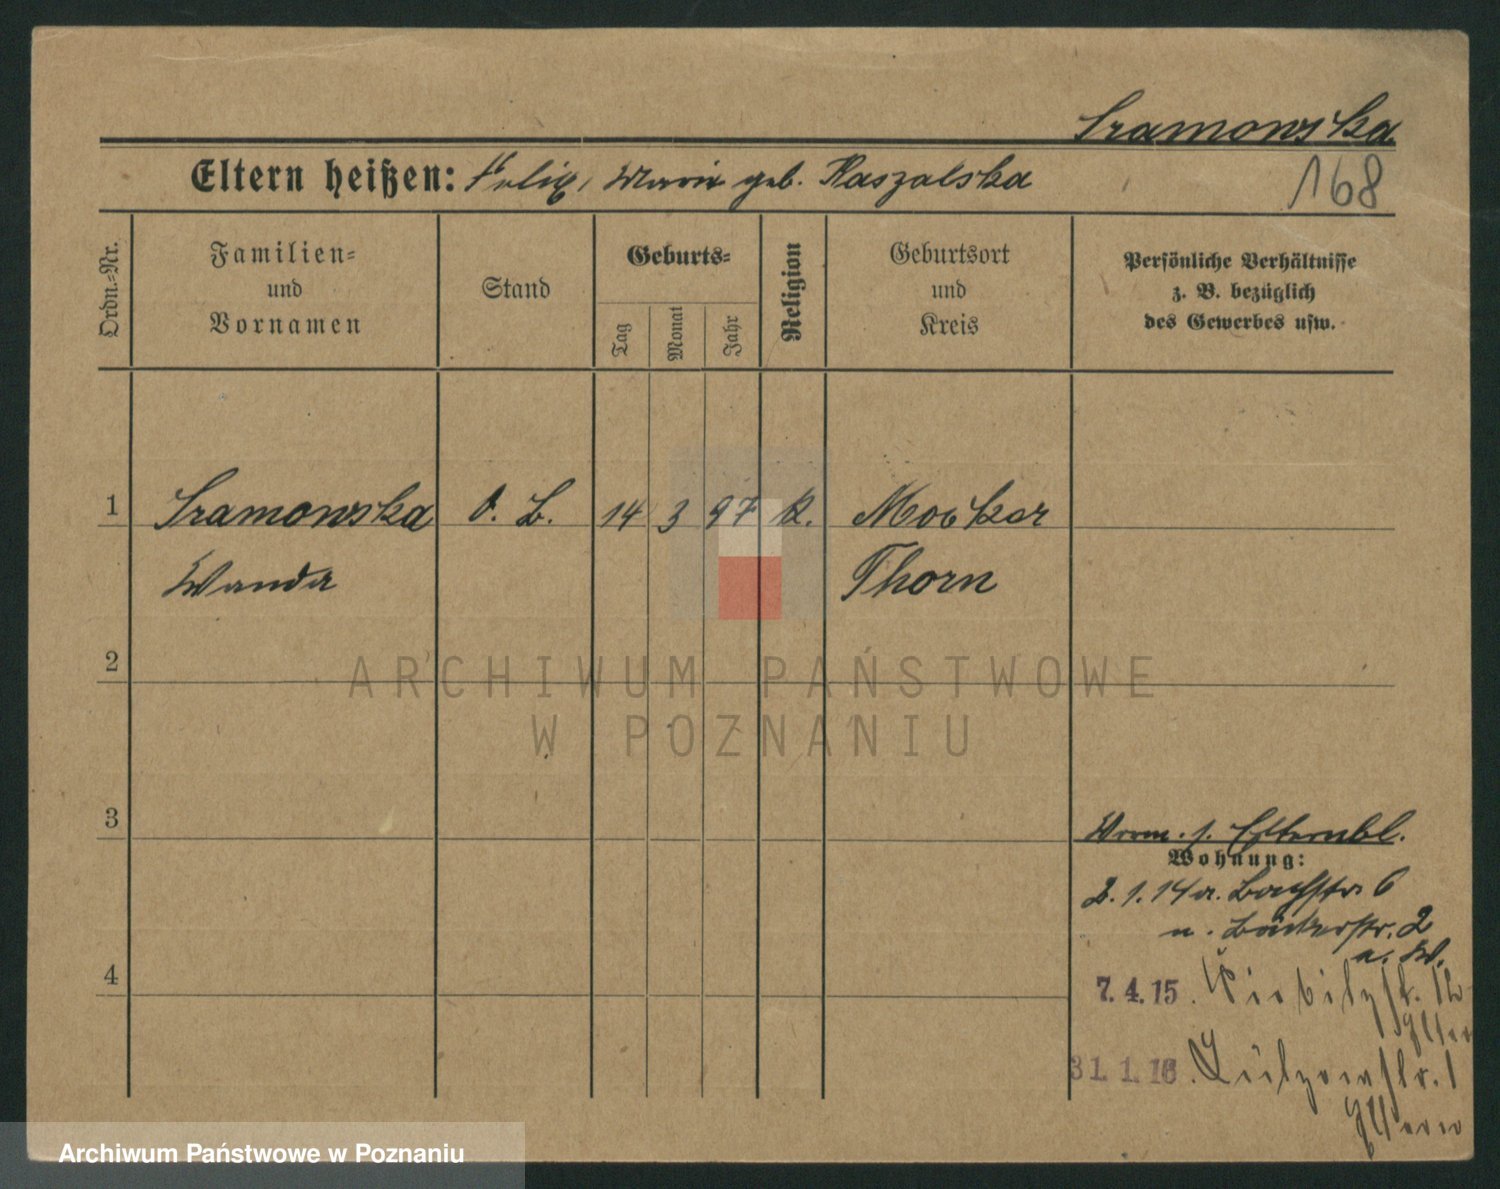 Sramowska
Eltern heißen: Felix, Marie geb. Kaszalska
168
Ordn.-Nr.
Familien-
und
Vornamen
Stand
Geburts-
Tag
Monat
Jahr
Religion
Geburtsort
und
Kreis
Persönliche Verhältnisse
z. B. bezüglich
des Gewerbes usw.
1 Sramowska O. L. 14 3 97 k. Mocker
Wanda Thorn
2
3
4
Verm. s. Elternbl.
Wohnung:
2.1.14 a. Bachstr. 6
n. Bäckerstr. 2
a. W.
7.4.15.
Eltern
31.1.16. Lützowstr. 1
Eltern
ARCHIWUM PAŃSTWOWE
W POZNANIU
Archiwum Państwowe w Poznaniu